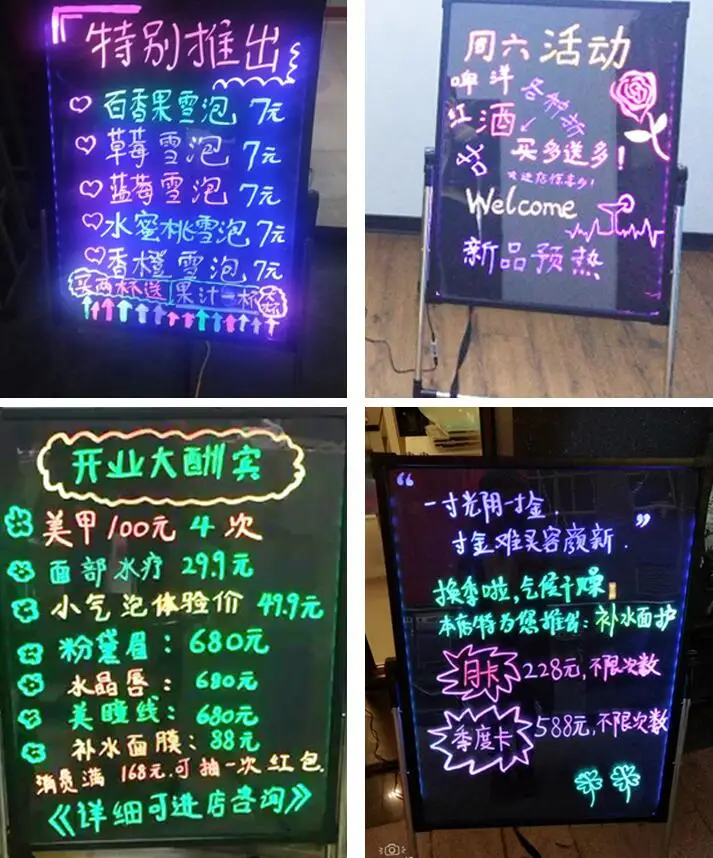 特别推出
百香果雪泡 7元
草莓雪泡 7元
蓝莓雪泡 7元
水蜜桃雪泡 7元
香橙雪泡 7元
买两杯送果汁一杯
周六活动
啤 洋 各种折
红 酒
买多送多!
欢迎店惊喜多!
Welcome
新品预热
开业大酬宾
美甲100元 4次
面部水疗 29.9元
小气泡体验价 49.9元
粉黛眉: 680元
水晶唇: 680元
美瞳线: 680元
补水面膜: 88元
消费满168元,可抽一次红包
《详细可进店咨询》
“一寸光阴一寸金.
寸金难买容颜新.”
换季啦,气候干燥
本店特为您推出:补水面护
月卡 228元,不限次数
季度卡 588元,不限次数